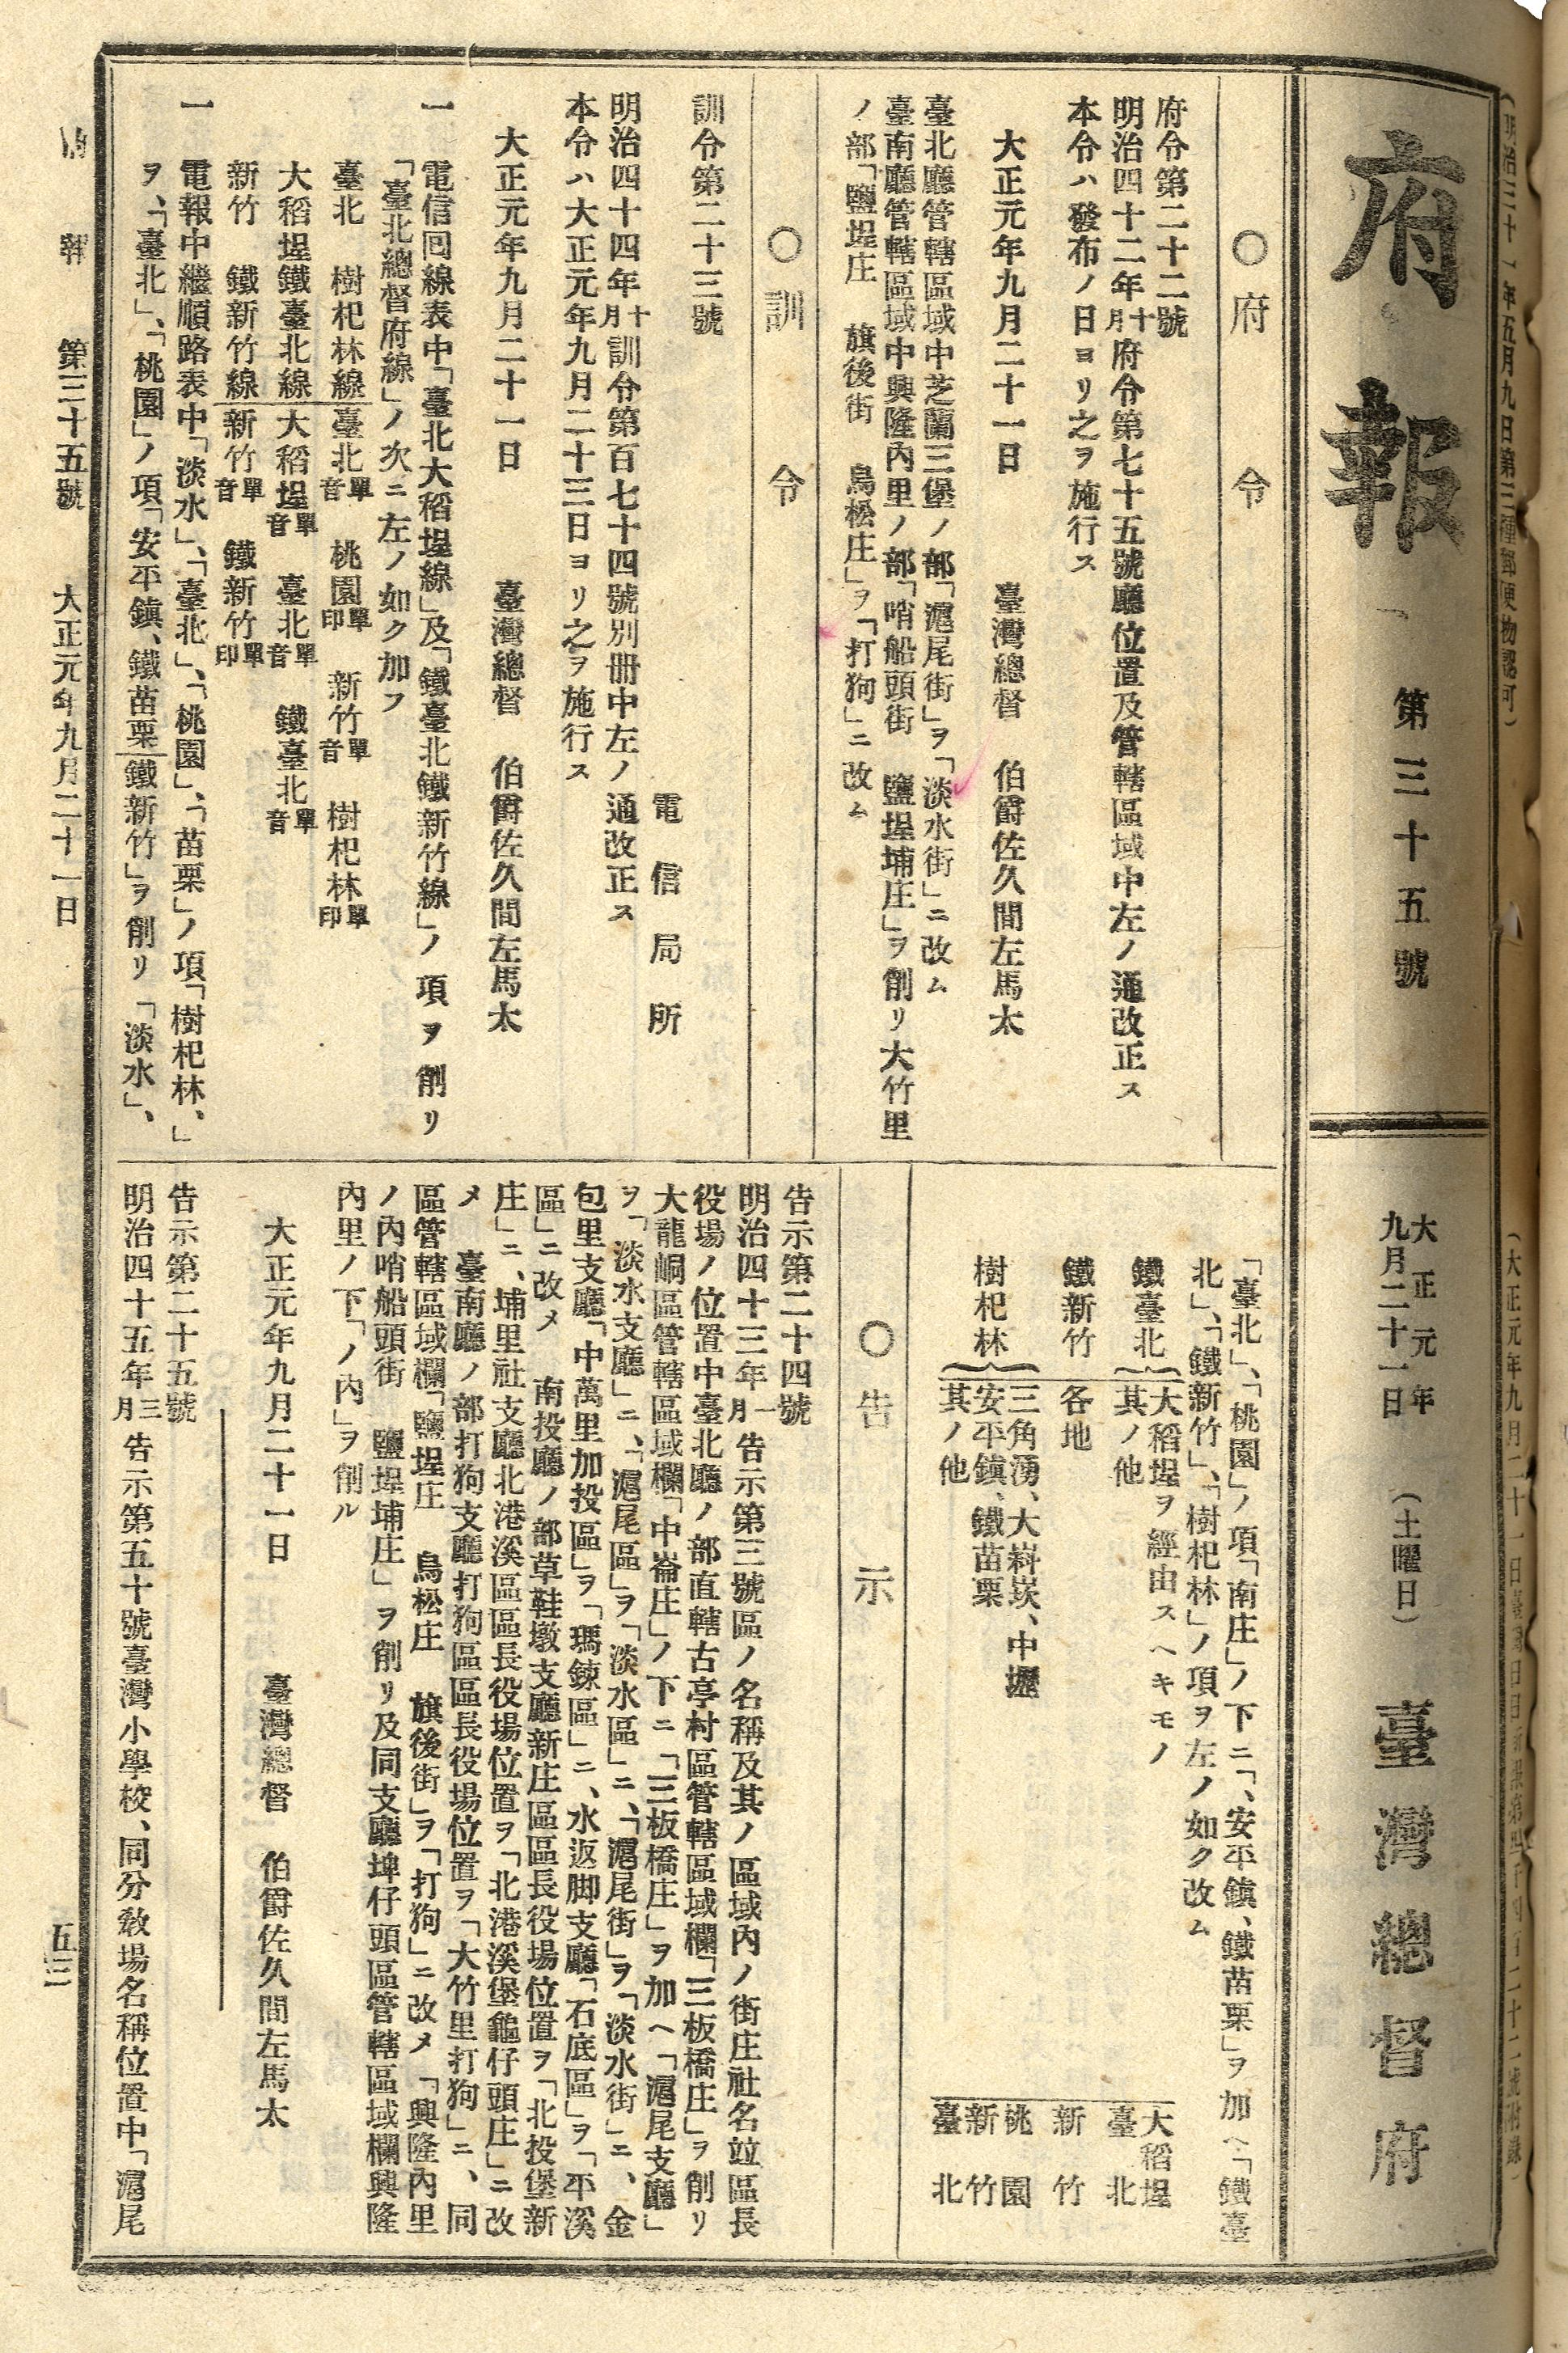 (明治三十一年五月九日第三種郵便物認可)
府報
第三十五號
大正元年
九月二十一日
(土曜日)
臺灣總督府
○府令
府令第二十二號
明治四十二年十月府令第七十五號廳位置及管轄區域中左ノ通改正ス
本令ハ發布ノ日ヨリ之ヲ施行ス
大正元年九月二十一日 臺灣總督 伯爵佐久間左馬太
臺北廳管轄區域中芝蘭三堡ノ部「滬尾街」ヲ「淡水街」ニ改ム
臺南廳管轄區域中興隆內里ノ部「哨船頭街 鹽埕埔庄」ヲ削リ大竹里
ノ部「鹽埕庄 旗後街 鳥松庄」ヲ「打狗」ニ改ム
○訓令
訓令第二十三號
電信局所
明治四十四年十月訓令第百七十四號別冊中左ノ通改正ス
本令ハ大正元年九月二十三日ヨリ之ヲ施行ス
大正元年九月二十一日 臺灣總督 伯爵佐久間左馬太
一 電信回線表中「臺北大稻埕線」及「鐵臺北鐵新竹線」ノ項ヲ削リ
「臺北總督府線」ノ次ニ左ノ如ク加フ
臺北 樹杞林線 臺北單音 桃園單印 新竹單音 樹杞林單印
大稻埕鐵臺北線 大稻埕單音 臺北單音 鐵臺北單音
新竹 鐵新竹線 新竹單音 鐵新竹單印
一 電報中繼順路表中「淡水」、「臺北」、「桃園」、「苗栗」ノ項「樹杞林、」
ヲ、「臺北」、「桃園」ノ項「安平鎭、鐵苗栗 鐵新竹」ヲ削リ「淡水」、
「臺北」、「桃園」ノ項「南庄」ノ下ニ「、安平鎭、鐵苗栗」ヲ加ヘ「鐵臺
北」、「鐵新竹」、「樹杞林」ノ項ヲ左ノ如ク改ム
鐵臺北 大稻埕ヲ經由スヘキモノ 大稻埕
其ノ他 臺北
鐵新竹 各地 新竹
樹杞林 三角湧、大嵙崁、中壢 桃園
安平鎭、鐵苗栗 新竹
其ノ他 臺北
○告示
告示第二十四號
明治四十三年一月告示第三號區ノ名稱及其ノ區域內ノ街庄社名竝區長
役場ノ位置中臺北廳ノ部直轄古亭村區管轄區域欄「三板橋庄」ヲ削リ
大龍峒區管轄區域欄「中崙庄」ノ下ニ「三板橋庄」ヲ加ヘ「滬尾支廳」
ヲ「淡水支廳」ニ、「滬尾區」ヲ「淡水區」ニ、「滬尾街」ヲ「淡水街」ニ、金
包里支廳「中萬里加投區」ヲ「瑪鋉區」ニ、水返脚支廳「石底區」ヲ「平溪
區」ニ改メ 南投廳ノ部草鞋墩支廳新庄區區長役場位置ヲ「北投堡新
庄」ニ、埔里社支廳北港溪區區長役場位置ヲ「北港溪堡龜仔頭庄」ニ改
メ 臺南廳ノ部打狗支廳打狗區區長役場位置ヲ「大竹里打狗」ニ、同
區管轄區域欄「鹽埕庄 鳥松庄 旗後街」ヲ「打狗」ニ改メ「興隆內里
ノ內哨船頭街 鹽埕埔庄」ヲ削リ及同支廳埤仔頭區管轄區域欄興隆
內里ノ下「ノ內」ヲ削ル
大正元年九月二十一日 臺灣總督 伯爵佐久間左馬太
告示第二十五號
明治四十五年三月告示第五十號臺灣小學校、同分敎場名稱位置中「滬尾
府報 第三十五號 大正元年九月二十一日 五三